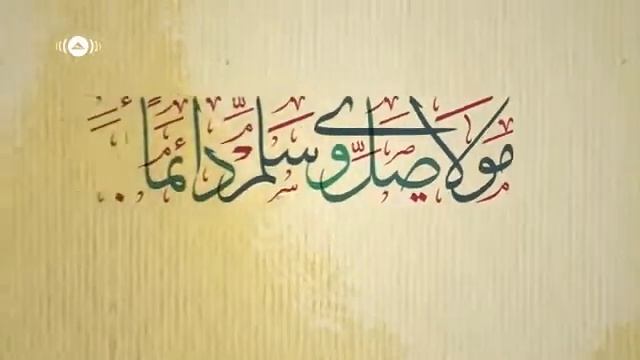 مولاي صلّ وسلّم دائماً